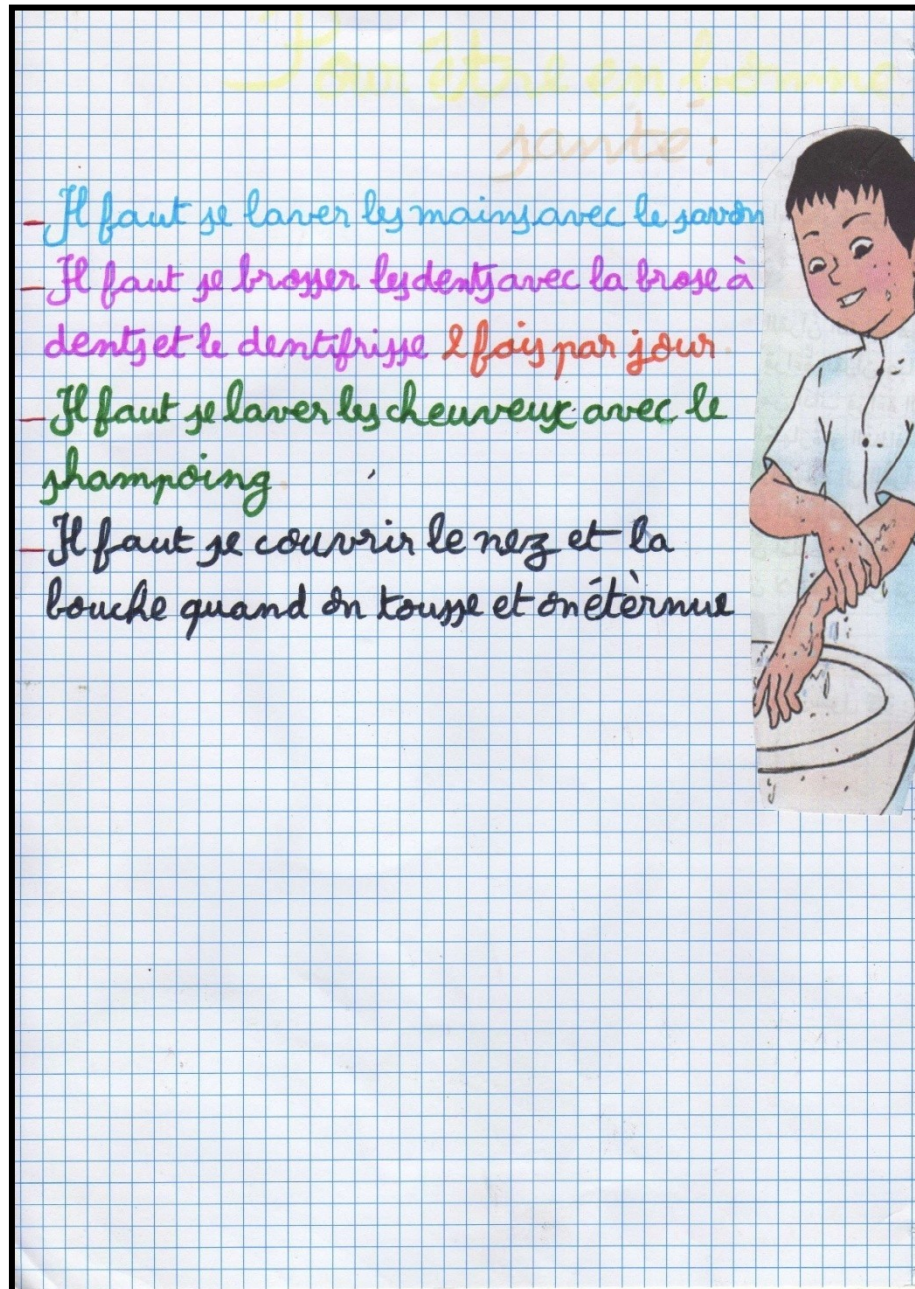 Pour être en bonne
santé :
- Il faut se laver les mains avec le savon
- Il faut se brosser les dents avec la brose à
dents et le dentifrisse 2 fois par jour.
- Il faut se laver les cheuveux avec le
shampoing.
- Il faut se couvrir le nez et la
bouche quand on tousse et on étèrnue